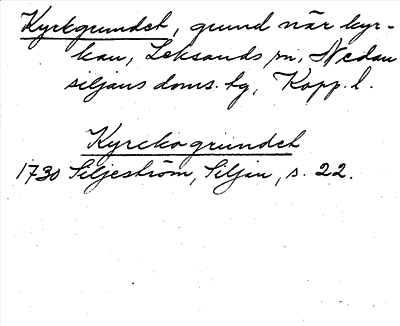 Kyrkgrundet, grund när kyr-
kan, Leksands sn, Nedan
siljans doms. tg, Kopp. l.
Kyrcko grundet
1730 Siljeström, Siljan, s. 22.